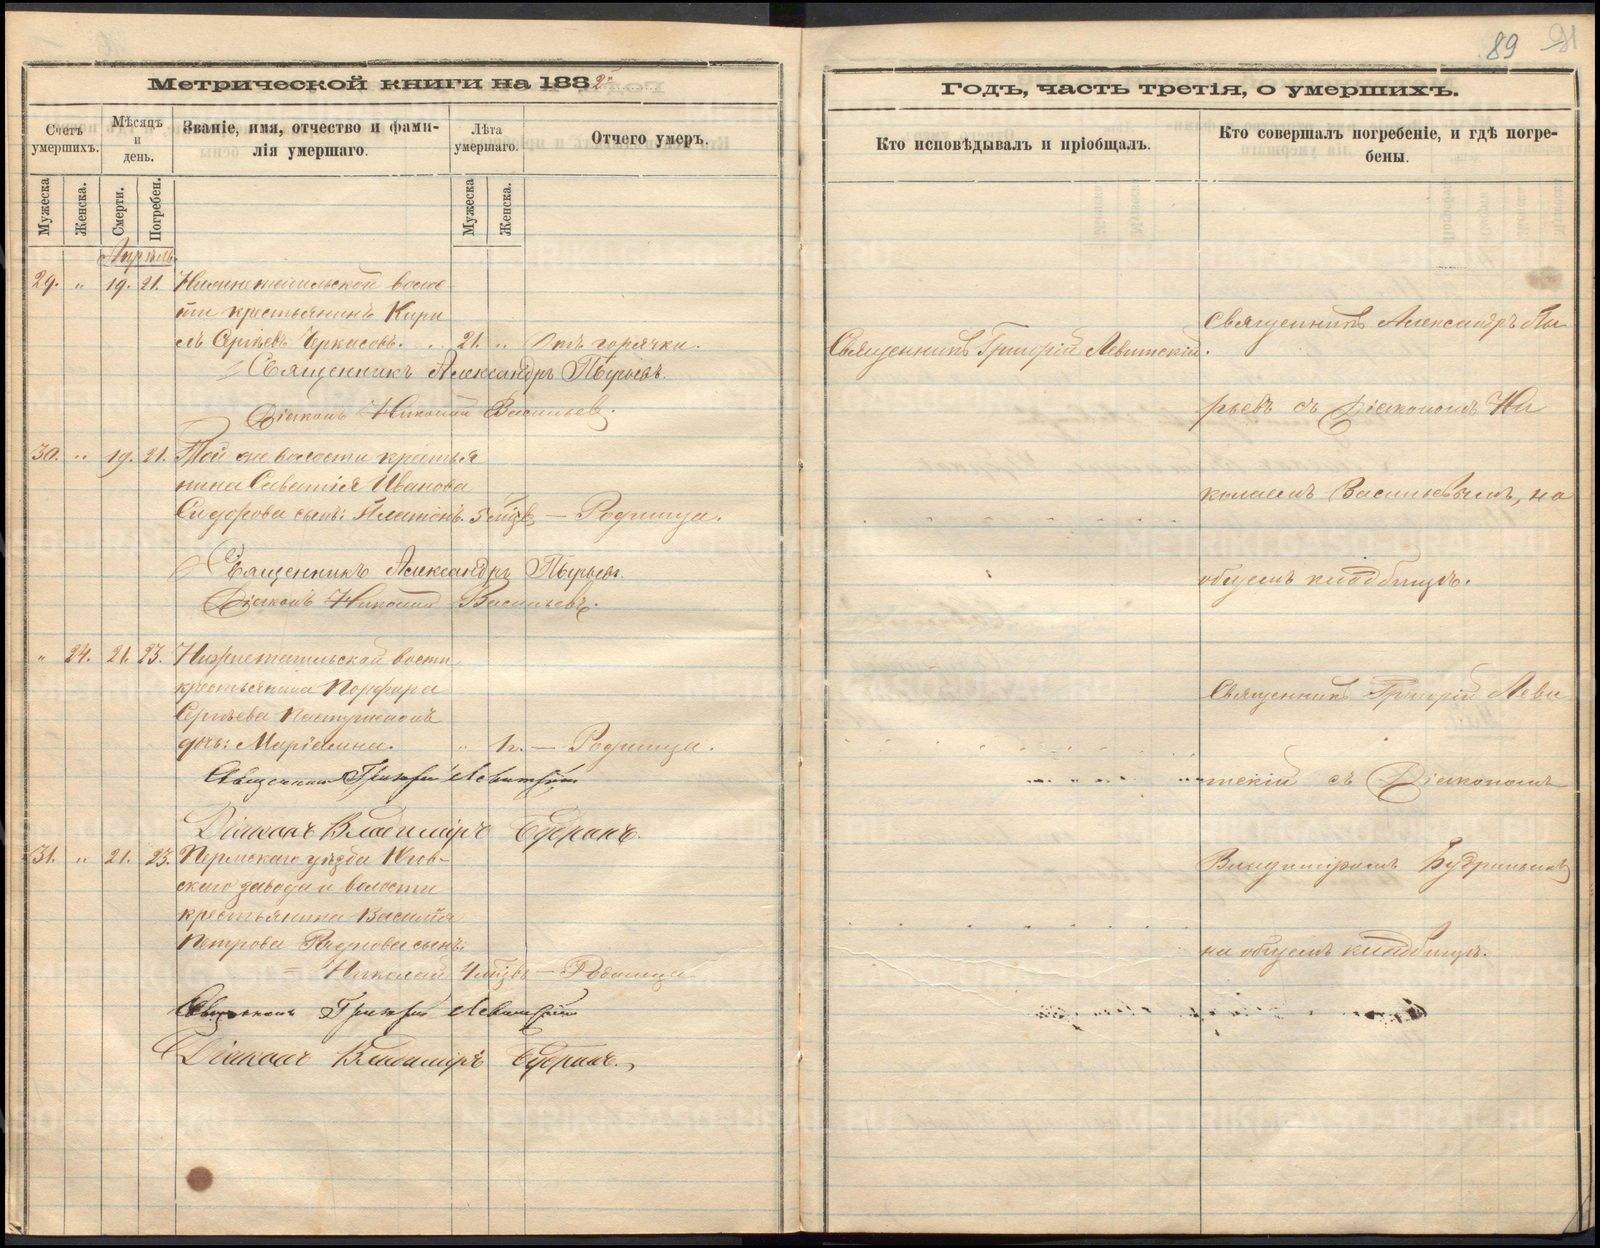 89
Метрической книги на 1882
Счетъ умершихъ.
Мѣсяцъ и день.
Званіе, имя, отчество и фами-
лія умершаго.
Лѣта умершаго.
Отчего умеръ.
Мужеска
Женска.
Смерти.
Погребен.
Мужеска
Женска.
Апрѣль.
29. " 19. 21. Нижнетагильской волос
ти крестьянинъ Кири
лъ Сергѣевъ Черкасовъ. 21. " Отъ горячки.
Священникъ Александръ Пырьевъ.
Діаконъ Николай Васильевъ.
30. " 19. 21. Той же волости крестья
нина Саватія Иванова
Сидорова сынъ: Платонъ. 5 мѣс. — Родимца.
Священникъ Александръ Пырьевъ.
Діаконъ Николай Васильевъ.
" 24. 21. 23. Нижнетагильской
крестьянина Порфира
Сергѣева
дочь: Маріамна. " — Родимца.
Священникъ Григорій Левитскій
Діаконъ Владимиръ Будринъ.
31. " 21. 23. Пермскаго уѣзда Югов-
скаго завода и волости
крестьянина Василія
Петрова сынъ:
= Николай 4 — Родимца
Священникъ Григорій Левитскій
Діаконъ Владимиръ Будринъ.
Годъ, часть третія, о умершихъ.
Кто исповѣдывалъ и пріобщалъ.
Кто совершалъ погребеніе, и гдѣ погре-
бены.
Священникъ Григорій Левитскій.
Священникъ Александръ Пы
рьевъ съ Діакономъ Ни
колаемъ Васильевымъ, на
общемъ кладбищѣ.
Священникъ Григорій Леви
тскій съ Діакономъ
Владиміромъ Будринымъ
на общемъ кладбищѣ.